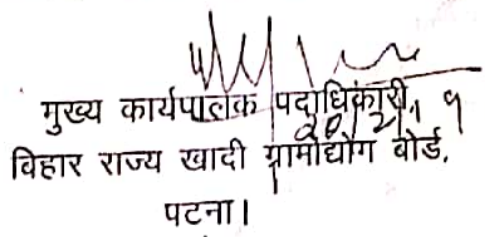 मुख्य कार्यपालक पदाधिकारी,
विहार राज्य खादी ग्रामोद्योग बोर्ड,
पटना।